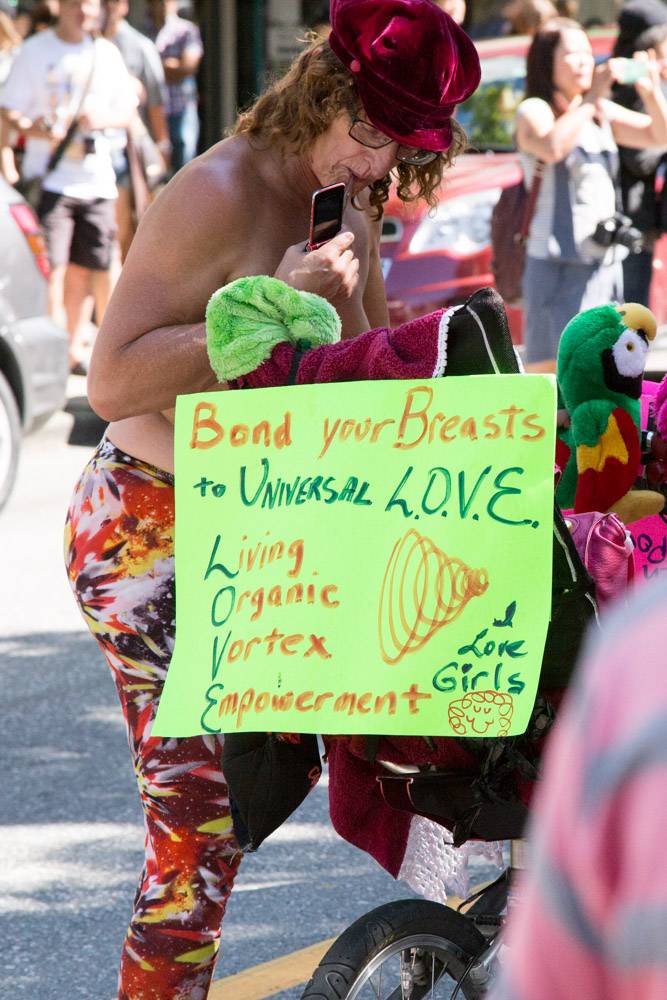 Bond your Breasts
to UNIVERSAL L.O.V.E.
Living
Organic
Vortex
Empowerment
I
Love
Girls